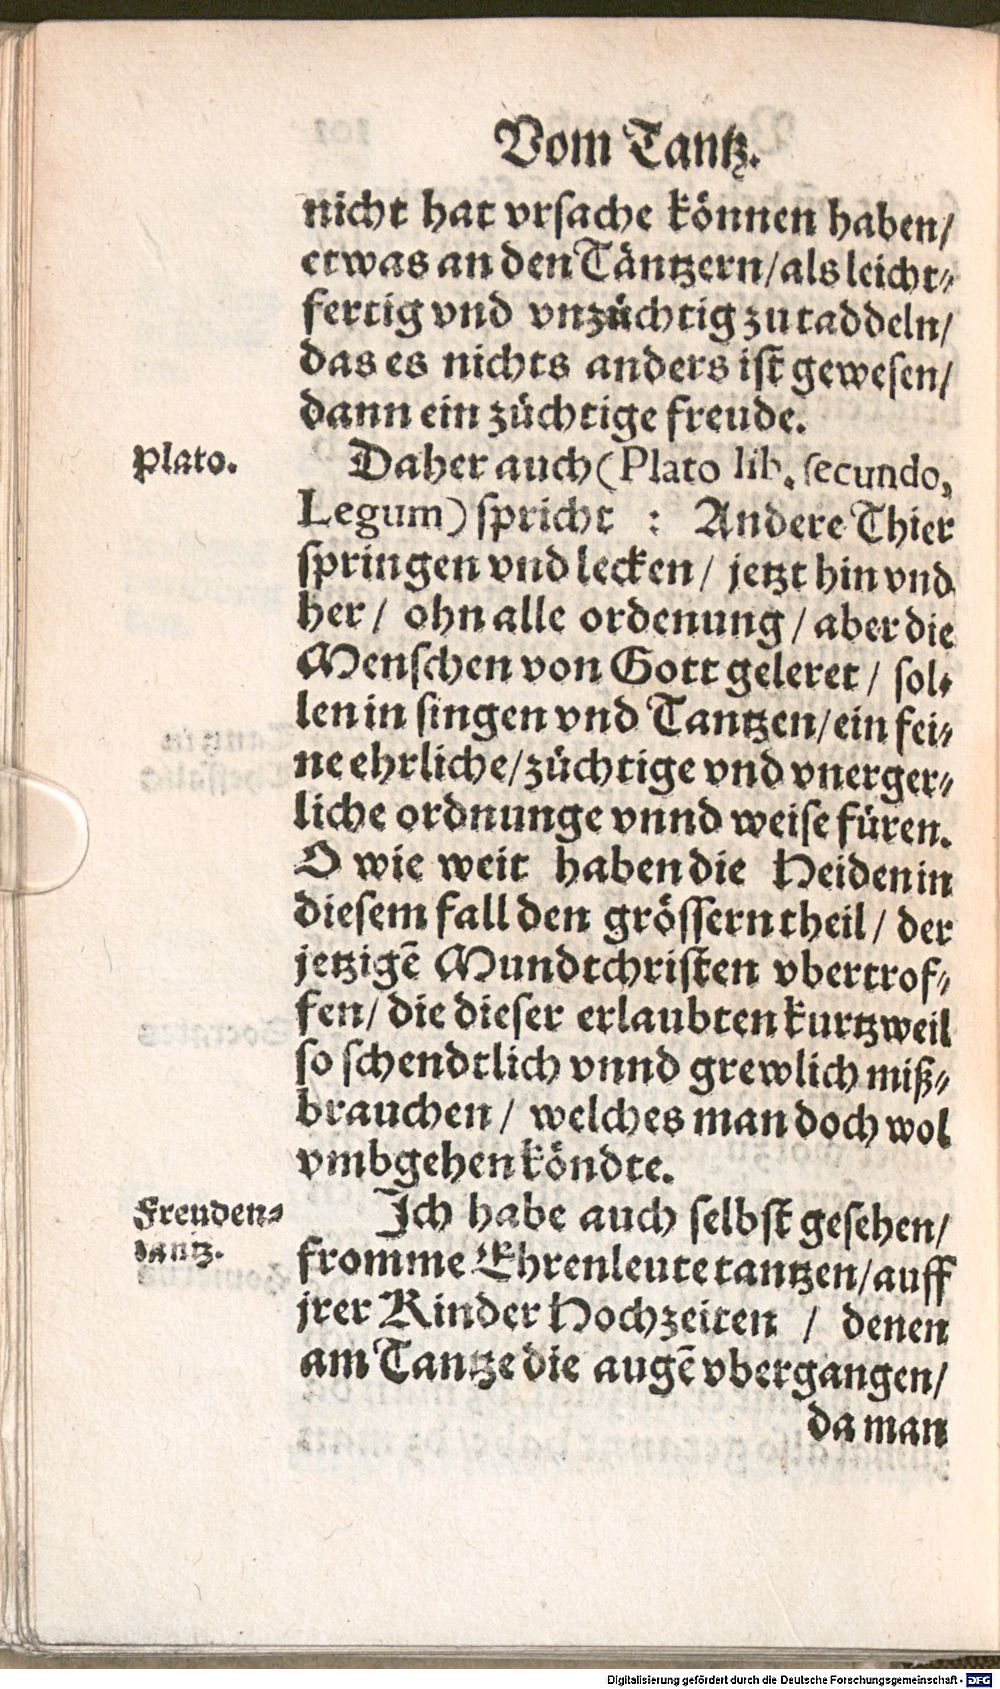 Vom Tantz.
nicht hat vrsache können haben/
etwas an den Täntzern/als leicht⸗
fertig vnd vnzüchtig zu taddeln/
das es nichts anders ist gewesen/
dann ein züchtige freude.
Plato.
Daher auch (Plato lib. secundo,
Legum) spricht : Andere Thier
springen vnd lecken/ jetzt hin vnd
her/ ohn alle ordenung/ aber die
Menschen von Gott geleret/ sol⸗
len in singen vnd Tantzen/ein fei⸗
ne ehrliche/züchtige vnd vnerger⸗
liche ordnunge vnnd weise füren.
O wie weit haben die Heiden in
diesem fall den grössern theil/ der
jetzigē Mundtchristen vbertrof⸗
fen/ die dieser erlaubten kurtzweil
so schendtlich vnnd grewlich miß⸗
brauchen/ welches man doch wol
vmbgehen köndte.
Freuden⸗
tantz.
Ich habe auch selbst gesehen/
fromme Ehrenleute tantzen/auff
jrer Kinder Hochzeiten / denen
am Tantze die augē vbergangen/
da man
Digitalisierung gefördert durch die Deutsche Forschungsgemeinschaft - DFG